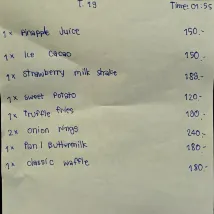 T. 19 Time: 01:55
1x Pineapple Juice 150.-
1x Ice Cacao 150.-
1x Strawberry milk shake 180.-
1x Sweet Potato 120.-
1x Truffle fries 180.-
2x onion rings 240.-
1x Buttermilk 180.-
1x classic waffle 180.-